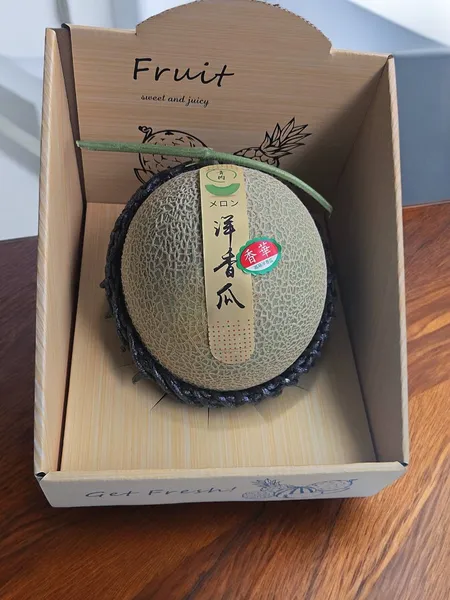 Fruit
sweet and juicy
メロン
洋香瓜
香華
Get Fresh!